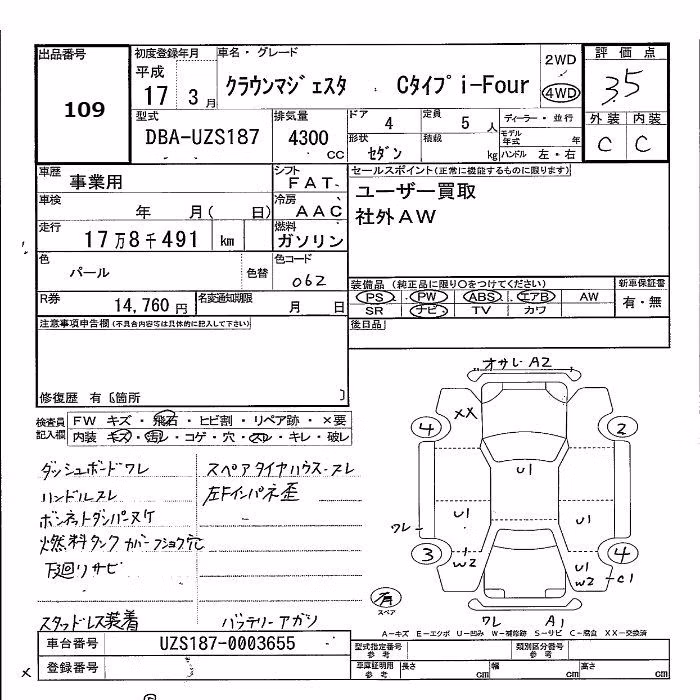 出品番号
109
初度登録年月
平成
17 3 月
車名・グレード
クラウンマジェスタ Cタイプ i-Four
2WD
4WD
評価点
3.5
外装 内装
C C
型式
DBA-UZS187
排気量
4300
CC
ドア
4
定員
5 人
形状
セダン
積載
kg
ディーラー・並行
モデル年式 年
ハンドル 左・右
車歴
事業用
シフト
FAT
車検
年 月( 日)
冷房
AAC
走行
17万8千491 km
燃料
ガソリン
色
パール
色替
色コード
062
R券
14,760 円
名変通知期限
月 日
セールスポイント(正常に機能するものに限ります)
ユーザー買取
社外AW
装備品 (純正品に限り○をつけてください)
新車保証書
PS PW ABS エアB AW
有・無
SR ナビ TV カワ
後日品
注意事項申告欄(不具合内容等は具体的に記入して下さい)
修復歴 有〔箇所 〕
検査員記入欄
FW キズ・飛石・ヒビ割・リペア跡・×要
内装 キズ・汚レ・コゲ・穴・スレ・キレ・破レ
ダッシュボードワレ
スペアタイヤハウス スレ
ハンドルスレ
左Fインパネ歪
ボンネットダンパーヌケ
燃料タンクカバーフショク穴
下廻りサビ
スタッドレス装着
バッテリーアガリ
オサレ A2
XX
4
2
U1
U1
U1
ワレ
3
W2
4
U1
W2
C1
有
スペア
ワレ A1
A-キズ E-エクボ U-凹み W-補修跡 S-サビ C-腐食 XX-交換済
車台番号
UZS187-0003655
登録番号
型式指定番号
参考
類別区分番号
参考
車庫証明用
参考
長さ cm
幅 cm
高さ cm